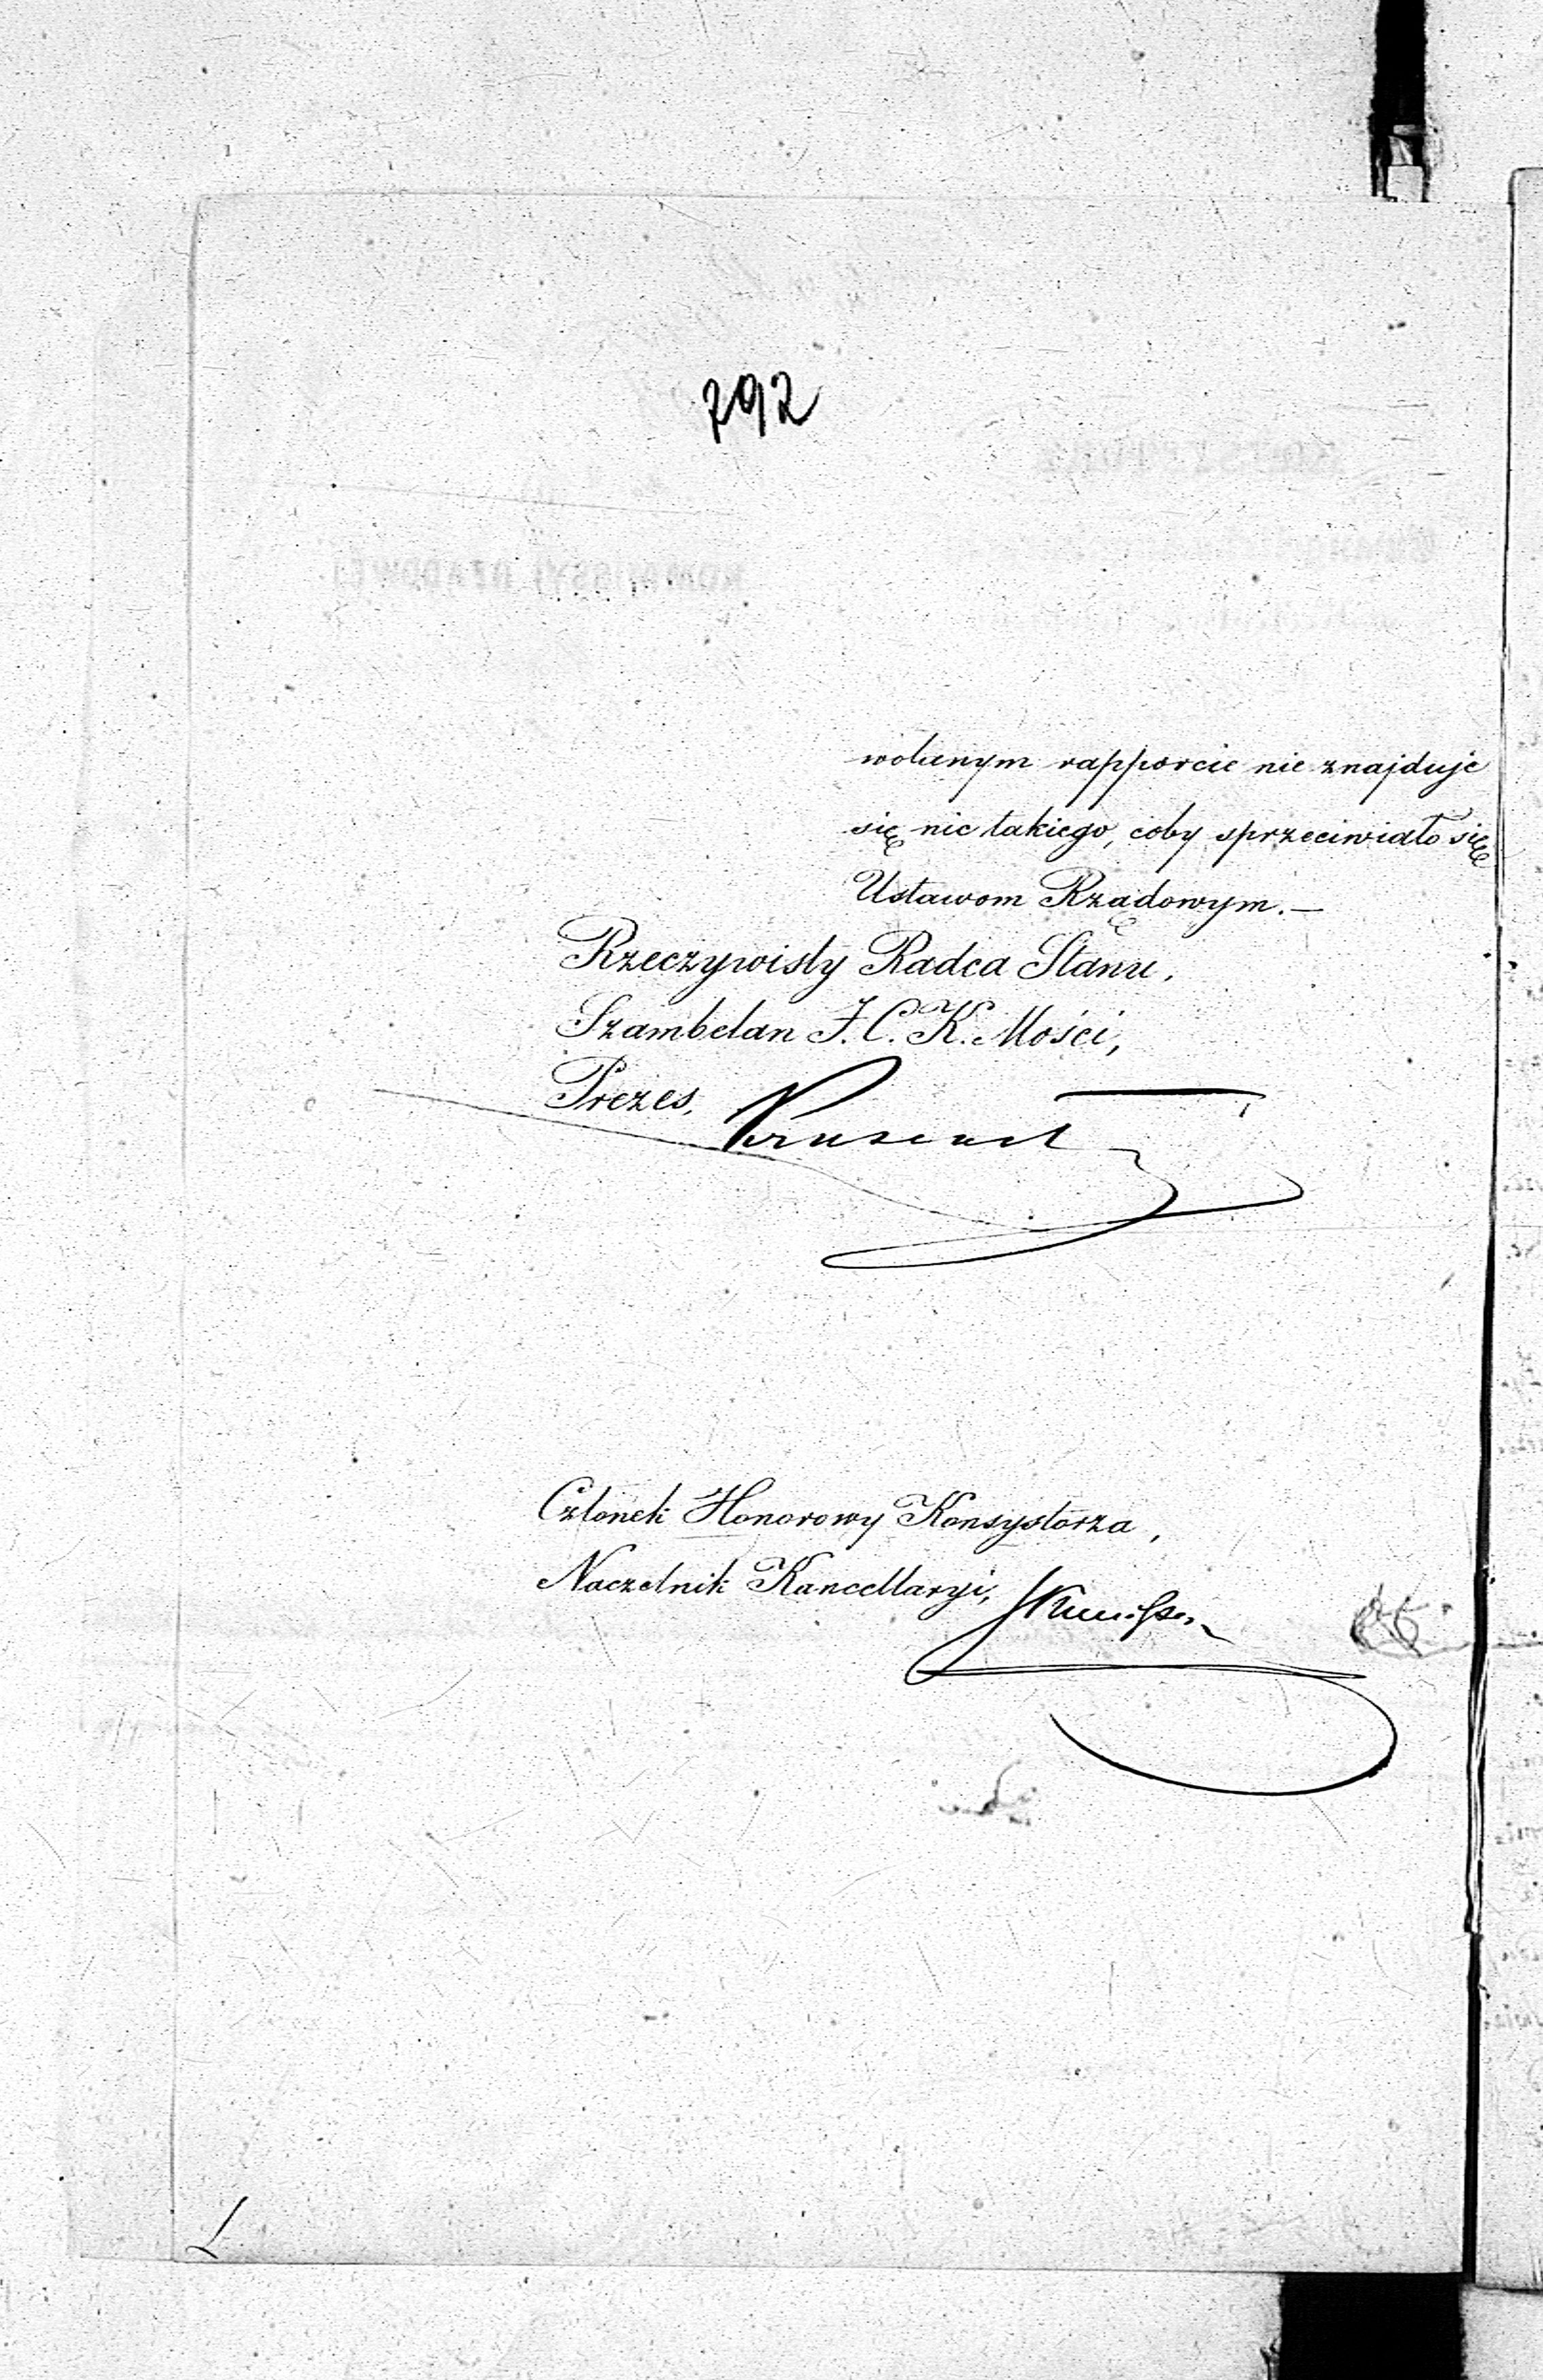 792
wołanym rapporcie nie znajduje
się nic takiego, coby sprzeciwiało się
Ustawom Rządowym.—
Rzeczywisty Radca Stanu,
Szambelan J. C. K. Mości,
Prezes,
Członek Honorowy Konsystorza,
Naczelnik Kancellaryi,